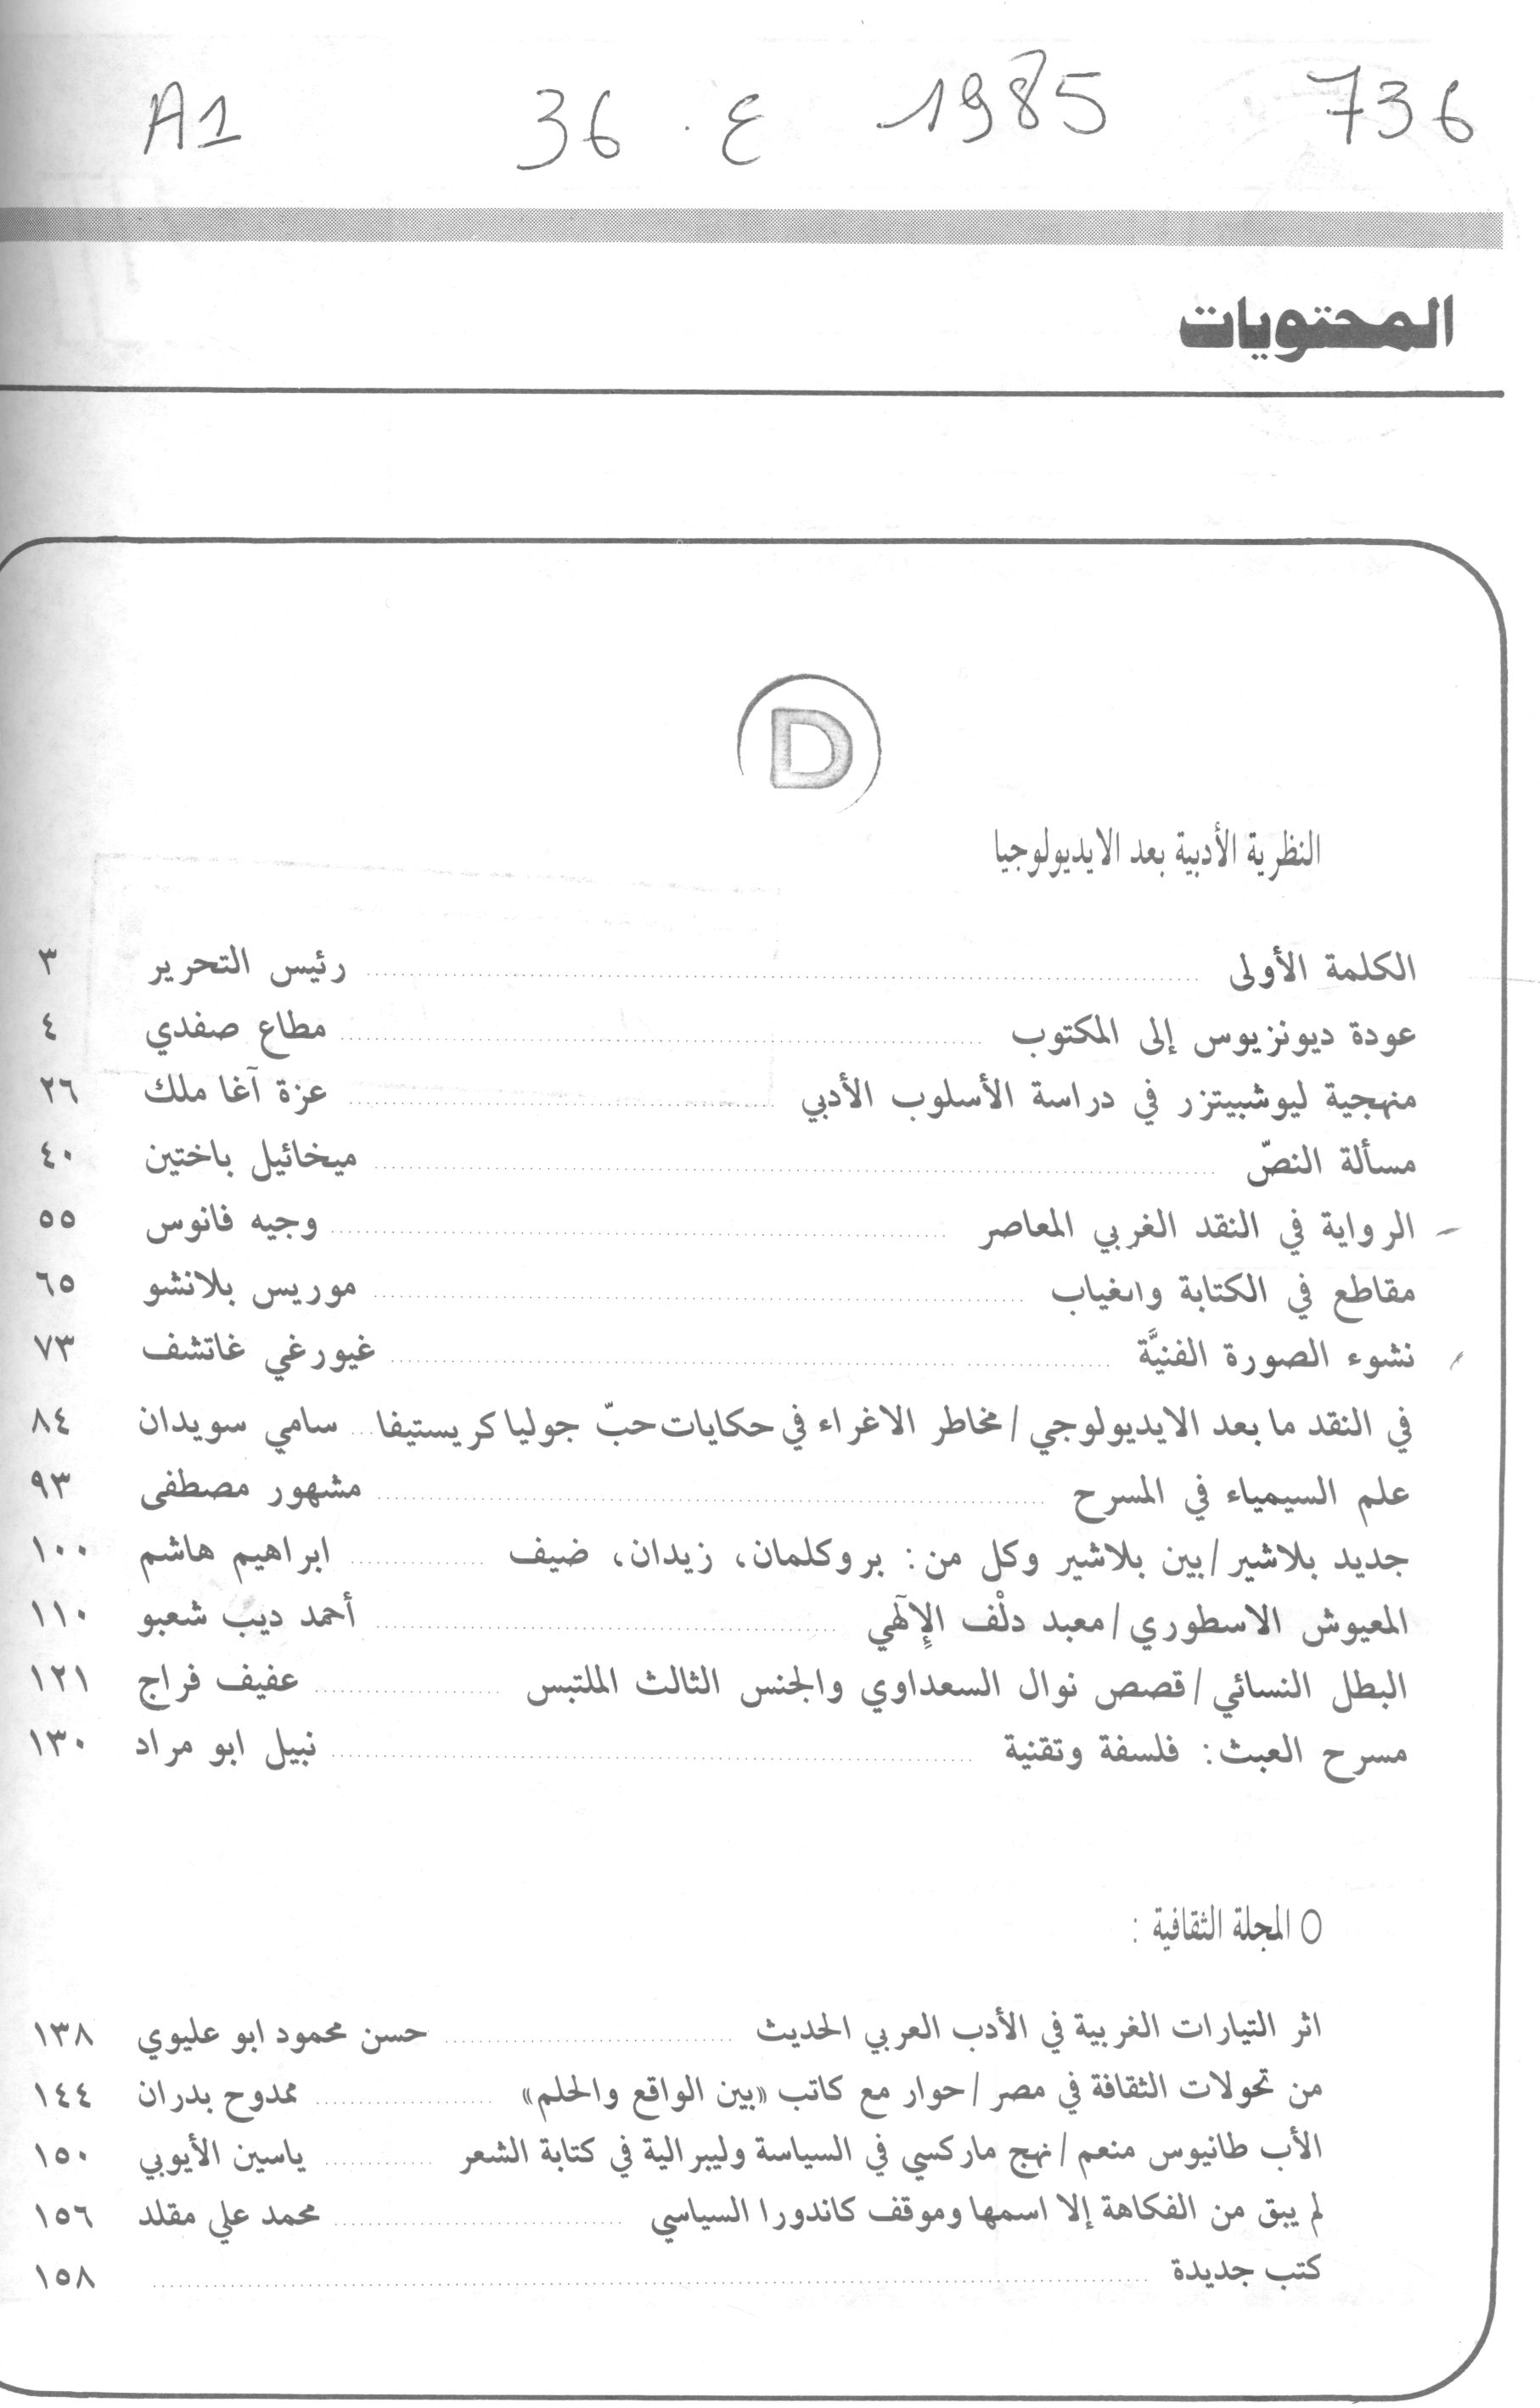 A1 36 . ع 1985 736
المحتويات
D
النظرية الأدبية بعد الايديولوجيا
الكلمة الأولى رئيس التحرير ٣
عودة ديونزيوس إلى المكتوب مطاع صفدي ٤
منهجية ليوشبيتزر في دراسة الأسلوب الأدبي عزة آغا ملك ٢٦
مسألة النصّ ميخائيل باختين ٤٠
الرواية في النقد الغربي المعاصر وجيه فانوس ٥٥
مقاطع في الكتابة والغياب موريس بلانشو ٦٥
نشوء الصورة الفنيَّة غيورغي غاتشف ٧٣
في النقد ما بعد الايديولوجي/مخاطر الاغراء في حكايات حبّ جوليا كريستيفا سامي سويدان ٨٤
علم السيمياء في المسرح مشهور مصطفى ٩٣
جديد بلاشير/بين بلاشير وكل من: بروكلمان، زيدان، ضيف ابراهيم هاشم ١٠٠
المعيوش الاسطوري/معبد دلْف الإلٓهي أحمد ديب شعبو ١١٠
البطل النسائي/قصص نوال السعداوي والجنس الثالث الملتبس عفيف فراج ١٢١
مسرح العبث: فلسفة وتقنية نبيل ابو مراد ١٣٠
○ المجلة الثقافية :
اثر التيارات الغربية في الأدب العربي الحديث حسن محمود ابو عليوي ١٣٨
من تحولات الثقافة في مصر/حوار مع كاتب «بين الواقع والحلم» ممدوح بدران ١٤٤
الأب طانيوس منعم/نهج ماركسي في السياسة وليبرالية في كتابة الشعر ياسين الأيوبي ١٥٠
لم يبق من الفكاهة إلا اسمها وموقف كاندورا السياسي محمد علي مقلد ١٥٦
كتب جديدة ١٥٨